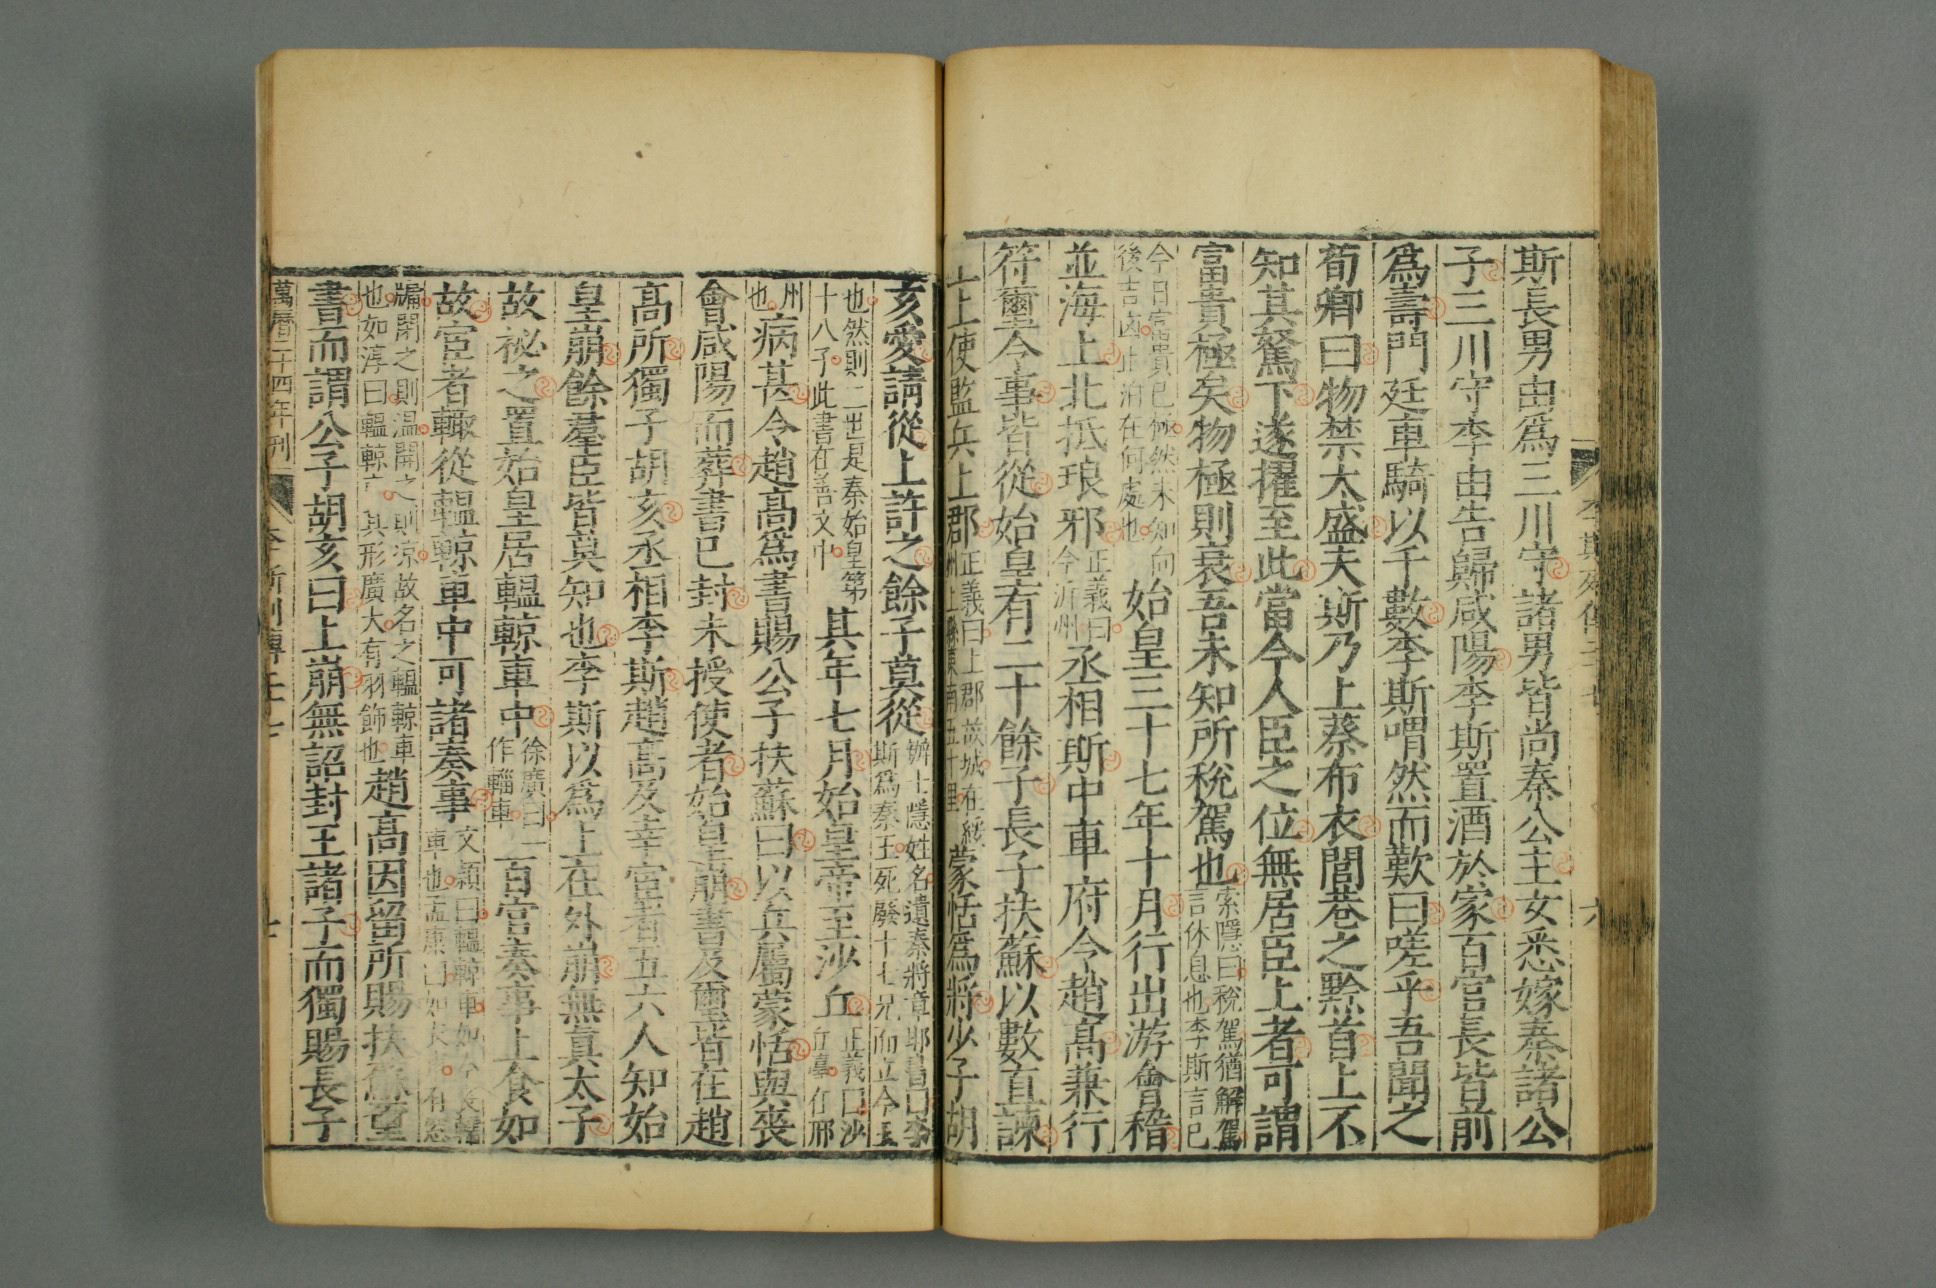 斯長男由爲三川守諸男皆尚秦公主女悉嫁秦諸公
子三川守李由告歸咸陽李斯置酒於家百官長皆前
爲壽門廷車騎以千數李斯喟然而歎曰嗟乎吾聞之
荀卿曰物禁大盛夫斯乃上蔡布衣閭巷之黔首上不
知其駑下遂擢至此當今人臣之位無居臣上者可謂
富貴極矣物極則衰吾未知所稅駕也索隱曰稅駕猶解駕言休息也李斯言巳
今日富貴已極然未知向後吉凶止泊在何處也始皇三十七年十月行出游會稽
並海上北抵琅邪正義曰今沂州丞相斯中車府令趙高兼行
符璽令事皆從始皇有二十餘子長子扶蘇以數直諫
上上使監兵上郡正義曰上郡故城在綏州上縣東南五十里蒙恬爲將少子胡
亥愛請從上許之餘子莫從辯士隱姓名遺秦將章邯書曰李斯爲秦王死廢十七兄而立今王
也然則二世是秦始皇第十八子此書在善文中其年七月始皇帝至沙丘正義曰沙丘臺在邢
州也病甚令趙高爲書賜公子扶蘇曰以兵屬蒙恬與喪
會咸陽而葬書已封未授使者始皇崩書及璽皆在趙
高所獨子胡亥丞相李斯趙高及幸宦者五六人知始
皇崩餘羣臣皆莫知也李斯以爲上在外崩無真太子
故祕之置始皇居轀輬車中徐廣曰一作輜車百官奏事上食如
故宦者輙從轀輬車中可諸奏事文穎曰轀輬車如今喪轜車也孟康曰如衣車有窓
牖閉之則温開之則凉故名之轀輬車也如淳曰轀輬車其形廣大有羽飾也趙高因留所賜扶蘇璽
書而謂公子胡亥曰上崩無詔封王諸子而獨賜長子
萬曆二十四年刊
李斯列傳二十七
七